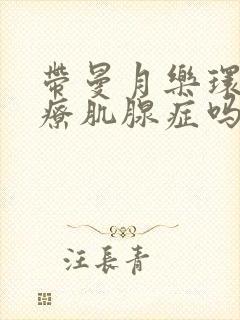 带曼月乐環
療肌腺症吗
汪長青